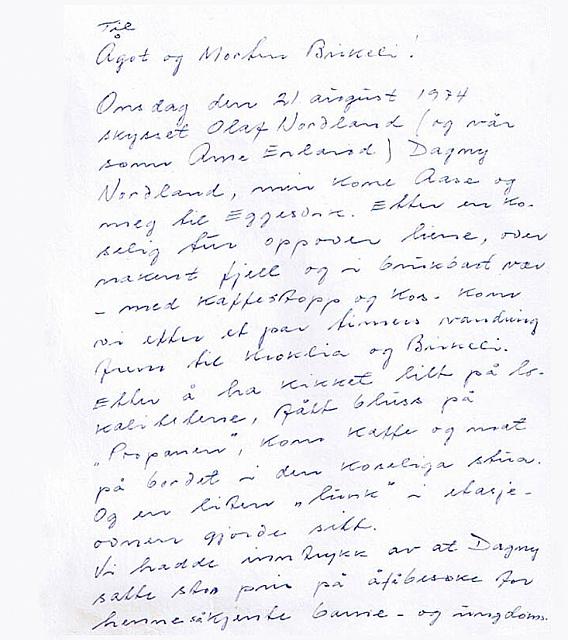 Til
Ågot og Morten Birkeli!
Onsdag den 21 august 1974
skysset Olaf Nordland (og vår
sønn Arne Erland) Dagny
Nordland, min kone Aase og
meg til Eggesvik. Etter en ko-
selig tur oppover liene, over
nakent fjell og i brukbart vær
- med kaffestopp og kos - kom
vi etter et par timers vandring
frem til Kroklia og Birkeli.
Etter å ha kikket litt på lo-
kalitetene, fått bluss på
"Propanen", kom kaffe og mat
på bordet i den koselige stua.
Og en liten "lunk" i etasje-
ovnen gjorde sitt.
Vi hadde inntrykk av at Dagny
satte stor pris på å få besøke
hennes kjente barne- og ungdoms-